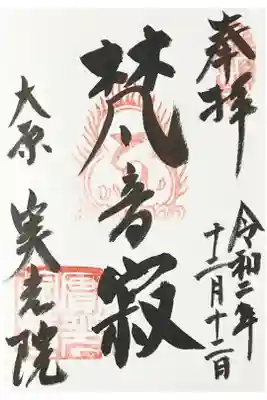 奉拝
令和二年
十二月十二日
梵音寂
大原
実光院